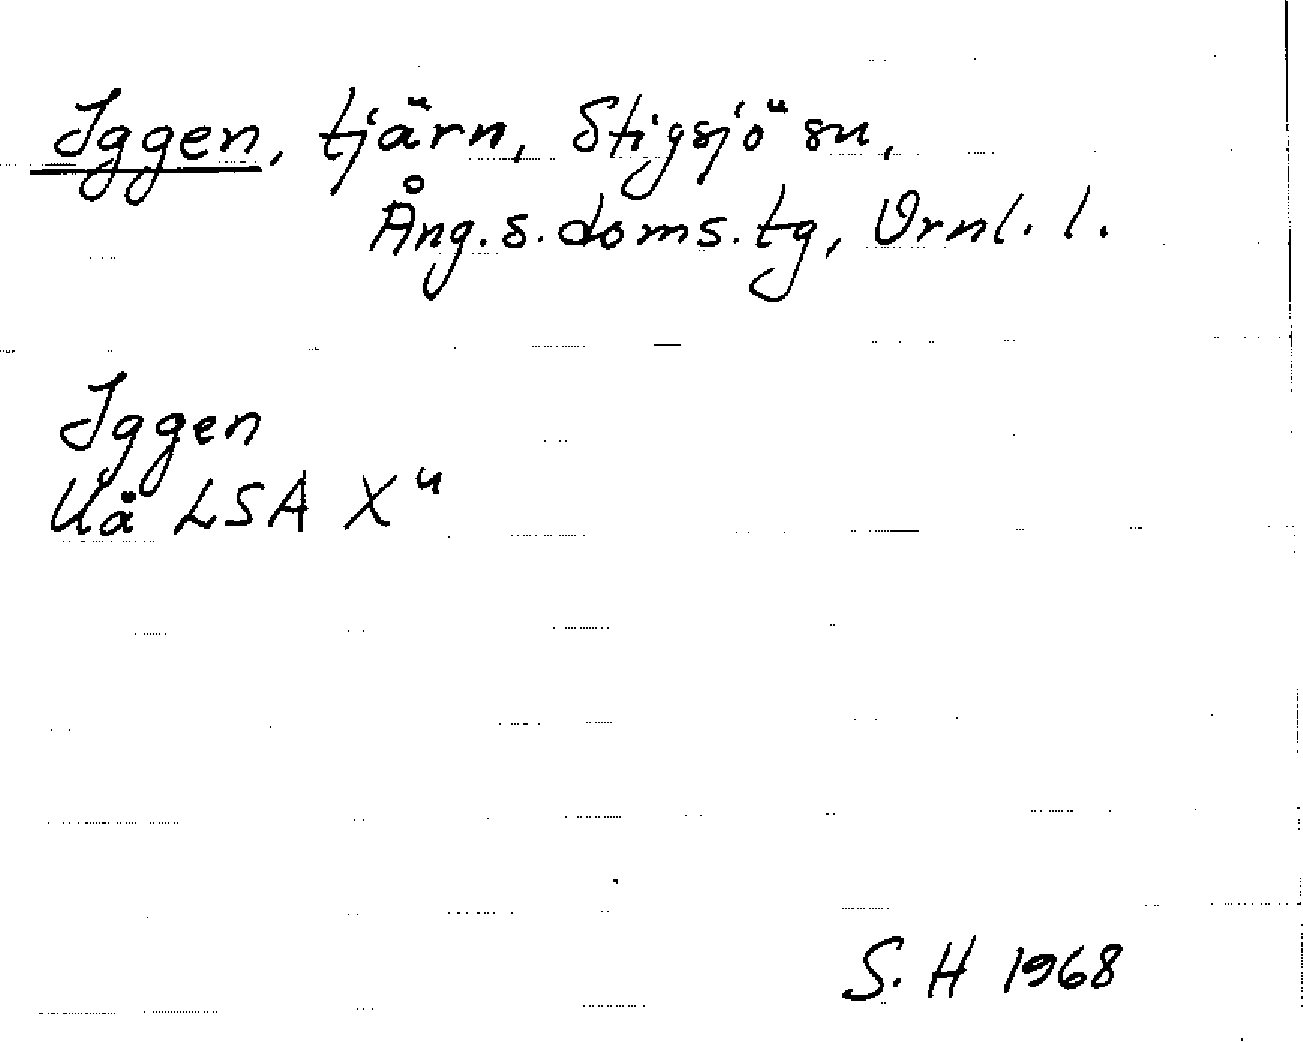 Iggen, tjärn, Stigsjö sn,
Ång. s. doms. tg, Vrnl. l.
Iggen
Uä LSA X⁴
S. H 1968